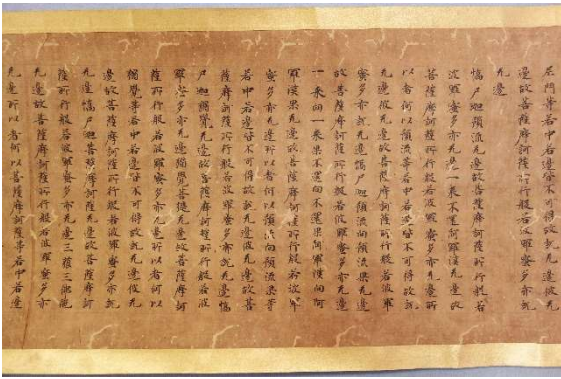 尼門等若中若邊皆不可得故說无邊彼无
邊故菩薩摩訶薩所行般若波羅蜜多亦說
无邊
憍尸迦預流无邊故菩薩摩訶薩所行般若
波羅蜜多亦无邊一來不還阿羅漢无邊故
菩薩摩訶薩所行般若波羅蜜多亦无邊所
以者何以預流等若中若邊皆不可得故說
无邊彼无邊故菩薩摩訶薩所行般若波羅
蜜多亦說无邊憍尸迦預流向預流果无邊
故菩薩摩訶薩所行般若波羅蜜多亦无邊
一來向一來果不還向不還果阿羅漢向阿
羅漢果无邊故菩薩摩訶薩所行般若波羅
蜜多亦无邊所以者何以預流向預流果等
若中若邊皆不可得故說无邊彼无邊故菩
薩摩訶薩所行般若波羅蜜多亦說无邊憍
尸迦獨覺无邊故菩薩摩訶薩所行般若波
羅蜜多亦无邊獨覺菩提无邊故菩薩摩訶
薩所行般若波羅蜜多亦无邊所以者何以
獨覺等若中若邊皆不可得故說无邊彼无
邊故菩薩摩訶薩所行般若波羅蜜多亦說
无邊憍尸迦菩薩摩訶薩无邊故菩薩摩訶
薩所行般若波羅蜜多亦无邊三藐三佛陀
无邊故菩薩摩訶薩所行般若波羅蜜多亦
无邊所以者何以菩薩摩訶薩等若中若邊